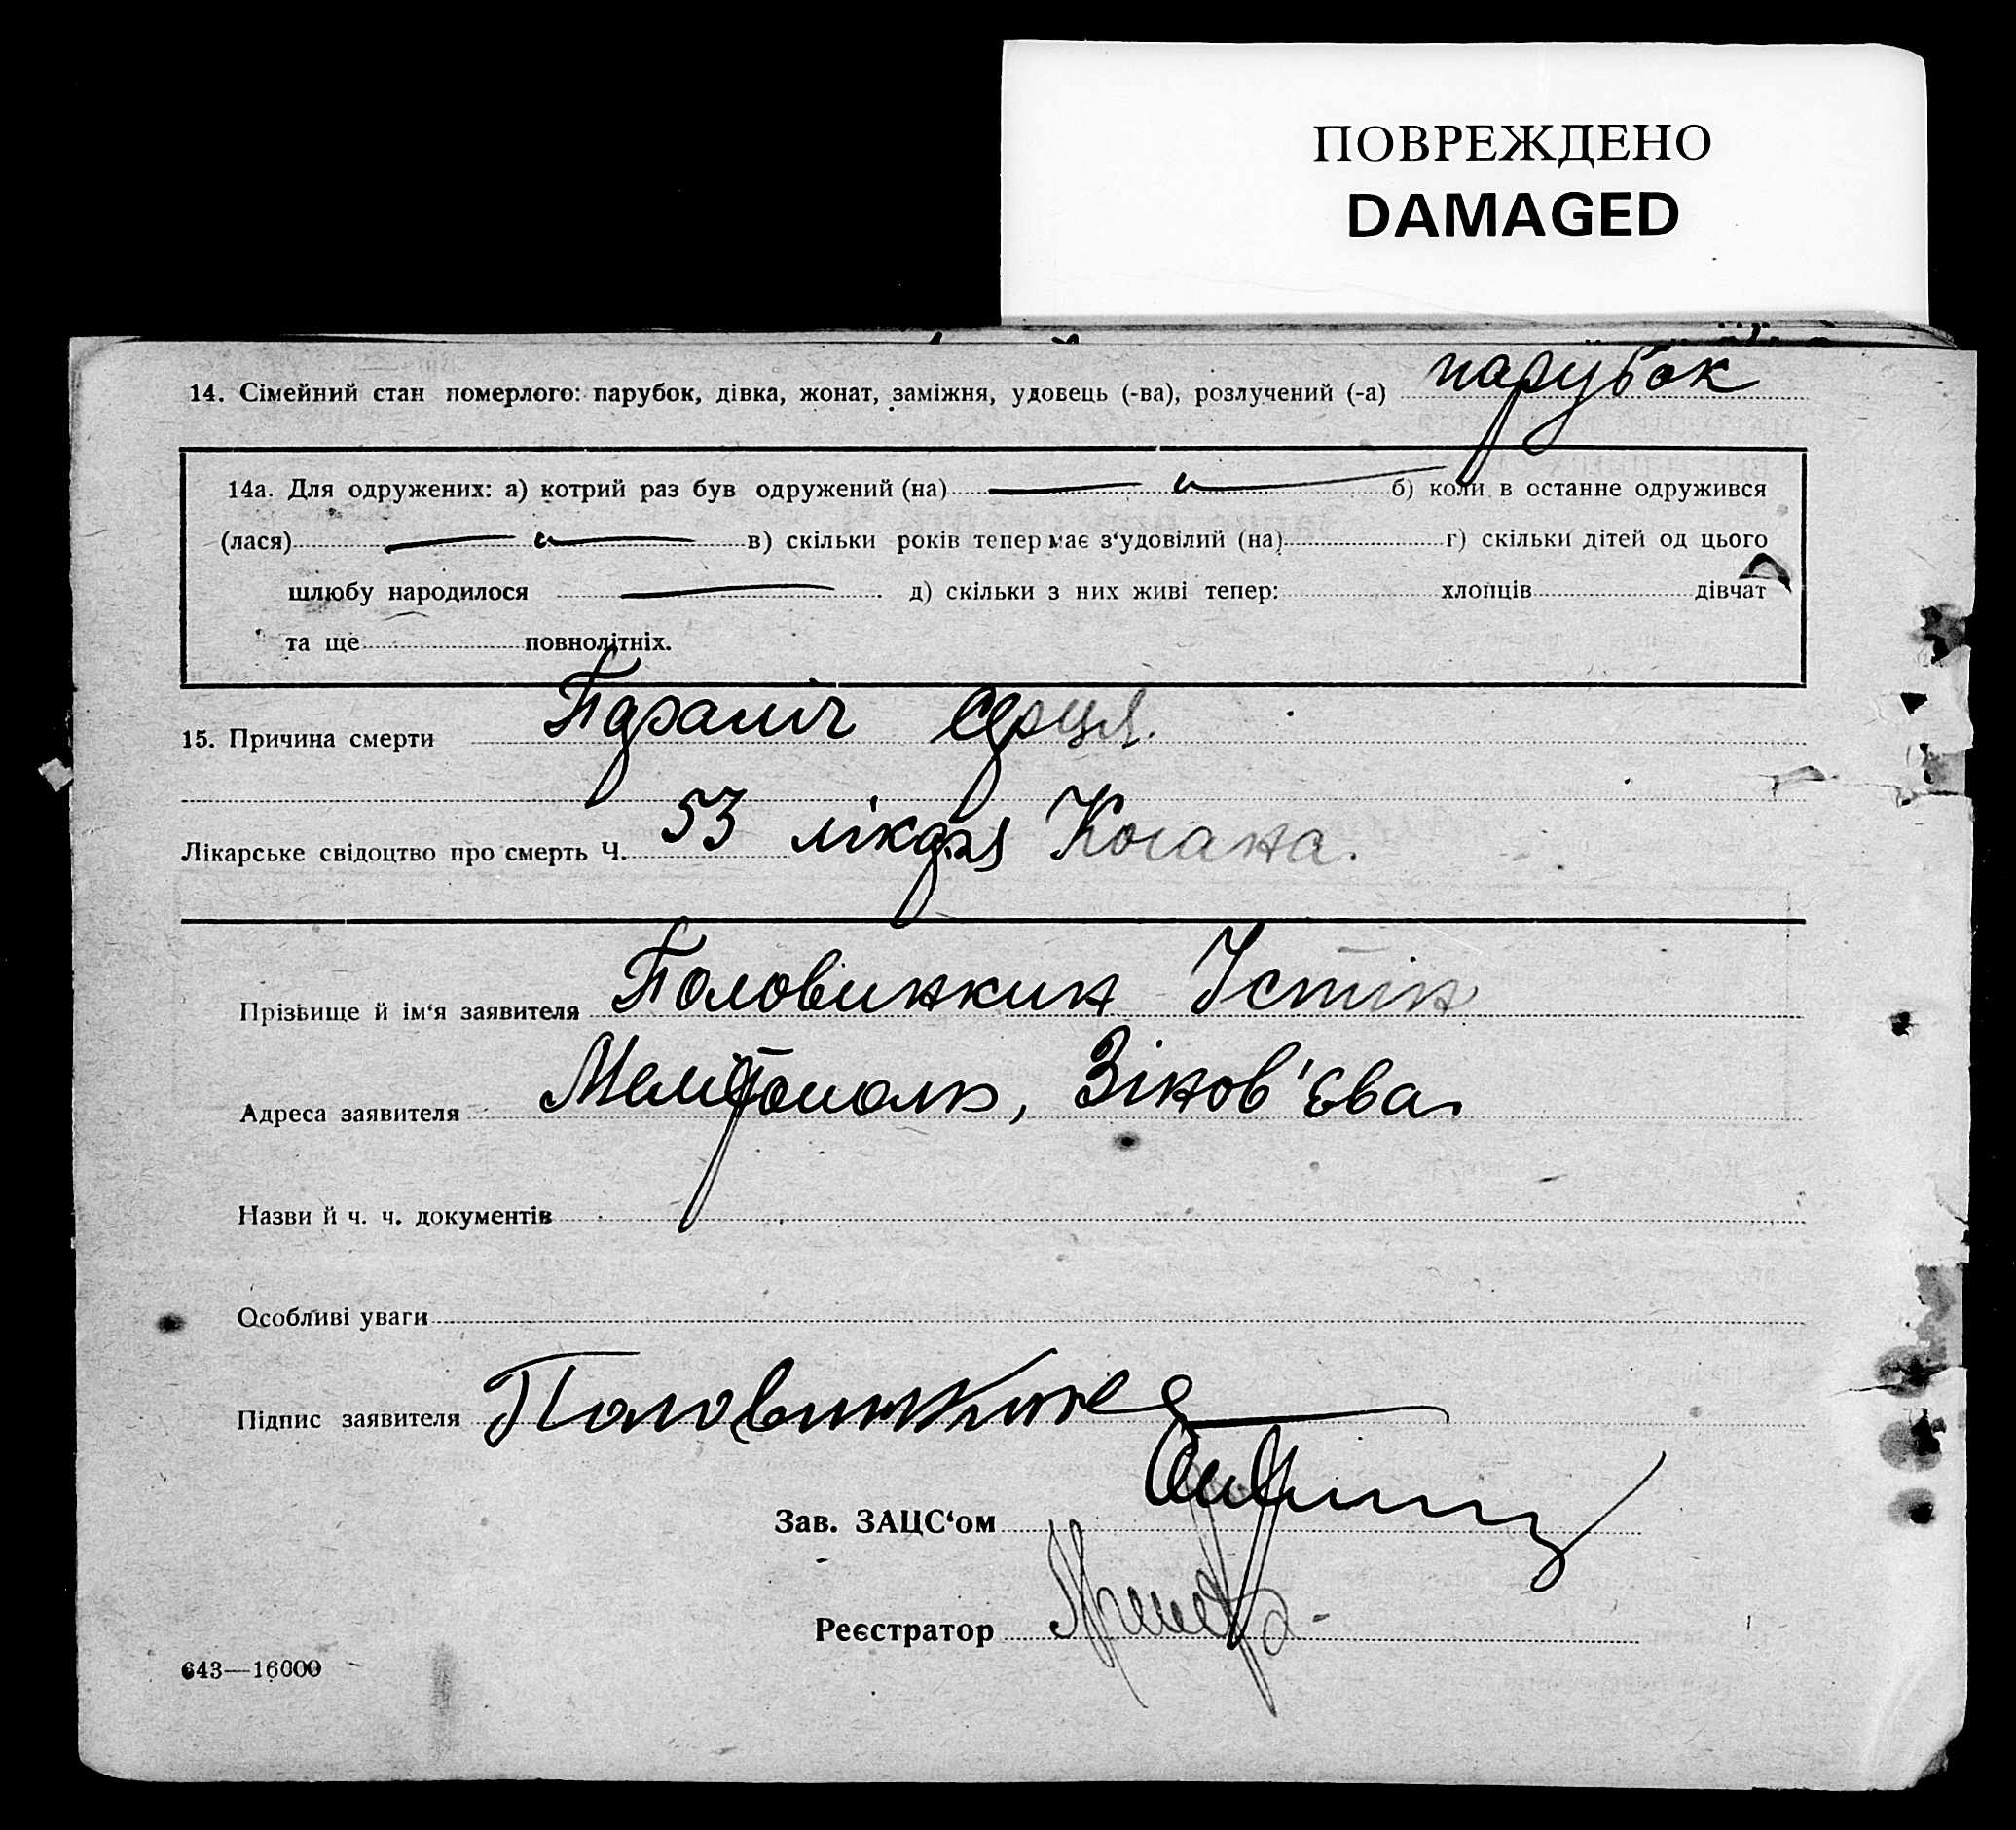 ПОВРЕЖДЕНО
DAMAGED
14. Сімейний стан померлого: парубок, дівка, жонат, заміжня, удовець (-ва), розлучений (-а) парубок
14а. Для одружених: а) котрий раз був одружений (на) б) коли в останнє одружився
(лася) в) скільки років тепер має з'удовілий (на) г) скільки дітей од цього
шлюбу народилося д) скільки з них живі тепер: хлопців дівчат
та ще повнолітніх.
15. Причина смерти Параліч серця.
Лікарське свідоцтво про смерть Ч. 53 лікаря Когана.
Прізвище й ім'я заявителя Половинкин Устін
Адреса заявителя Мелітополь, Зінов'єва
Назви й ч. ч. документів
Особливі уваги
Підпис заявителя Половинкин
Зав. ЗАЦС'ом
Реєстратор
643—16000